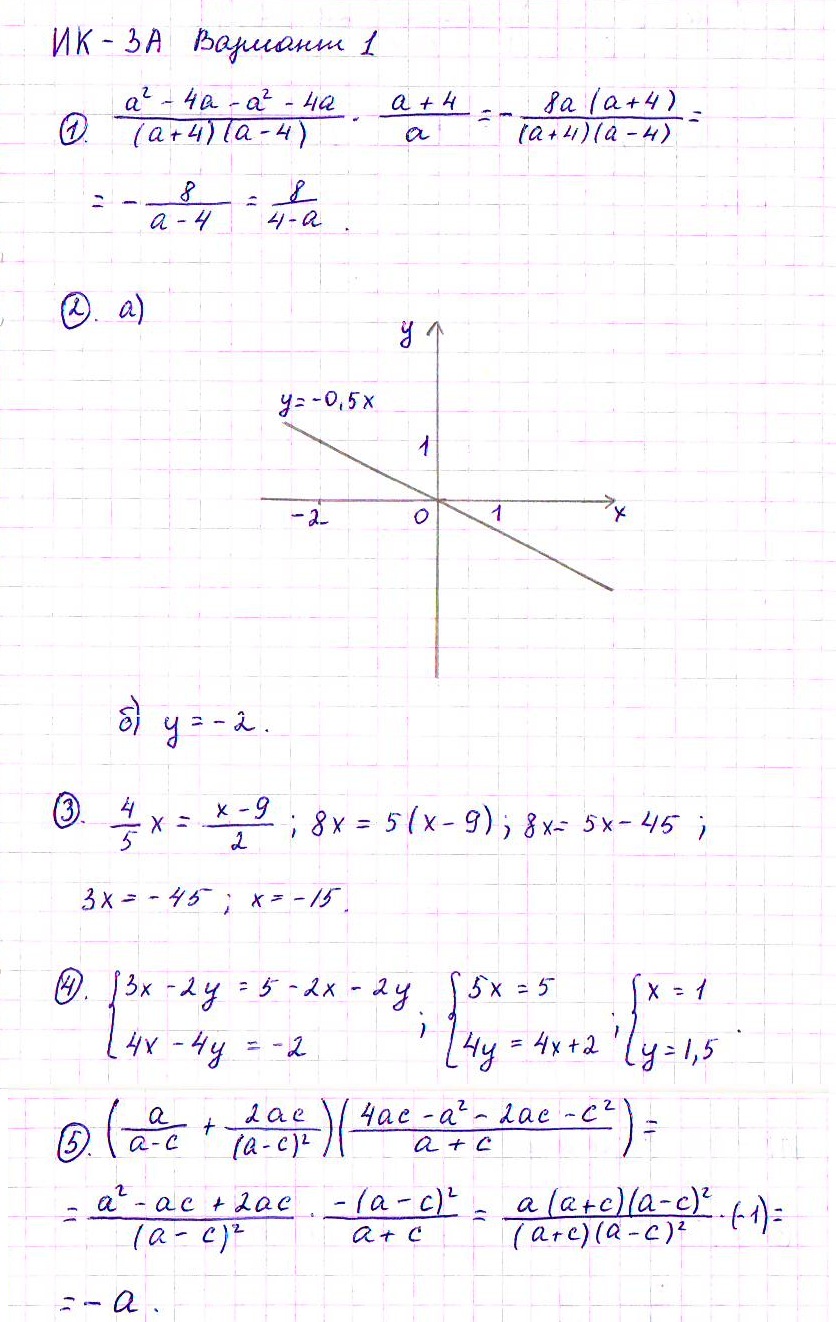 ИК - 3А Вариант 1
1. (a² - 4a - a² - 4a)/((a+4)(a-4)) · (a+4)/a = - (8a(a+4))/((a+4)(a-4)) =
= - 8/(a-4) = 8/(4-a).
2. а)
y
y=-0,5x
1
-2 0 1 x
б) y = -2.
3. 4/5 x = (x-9)/2 ; 8x = 5(x-9) ; 8x = 5x - 45 ;
3x = -45 ; x = -15.
4. { 3x - 2y = 5 - 2x - 2y ; { 5x = 5 ; { x = 1
4x - 4y = -2 4y = 4x+2 y = 1,5 .
5. (a/(a-c) + 2ac/(a-c)²)((4ac - a² - 2ac - c²)/(a+c)) =
= (a² - ac + 2ac)/(a-c)² · (-(a-c)²)/(a+c) = (a(a+c)(a-c)²)/((a+c)(a-c)²) · (-1) =
= -a.